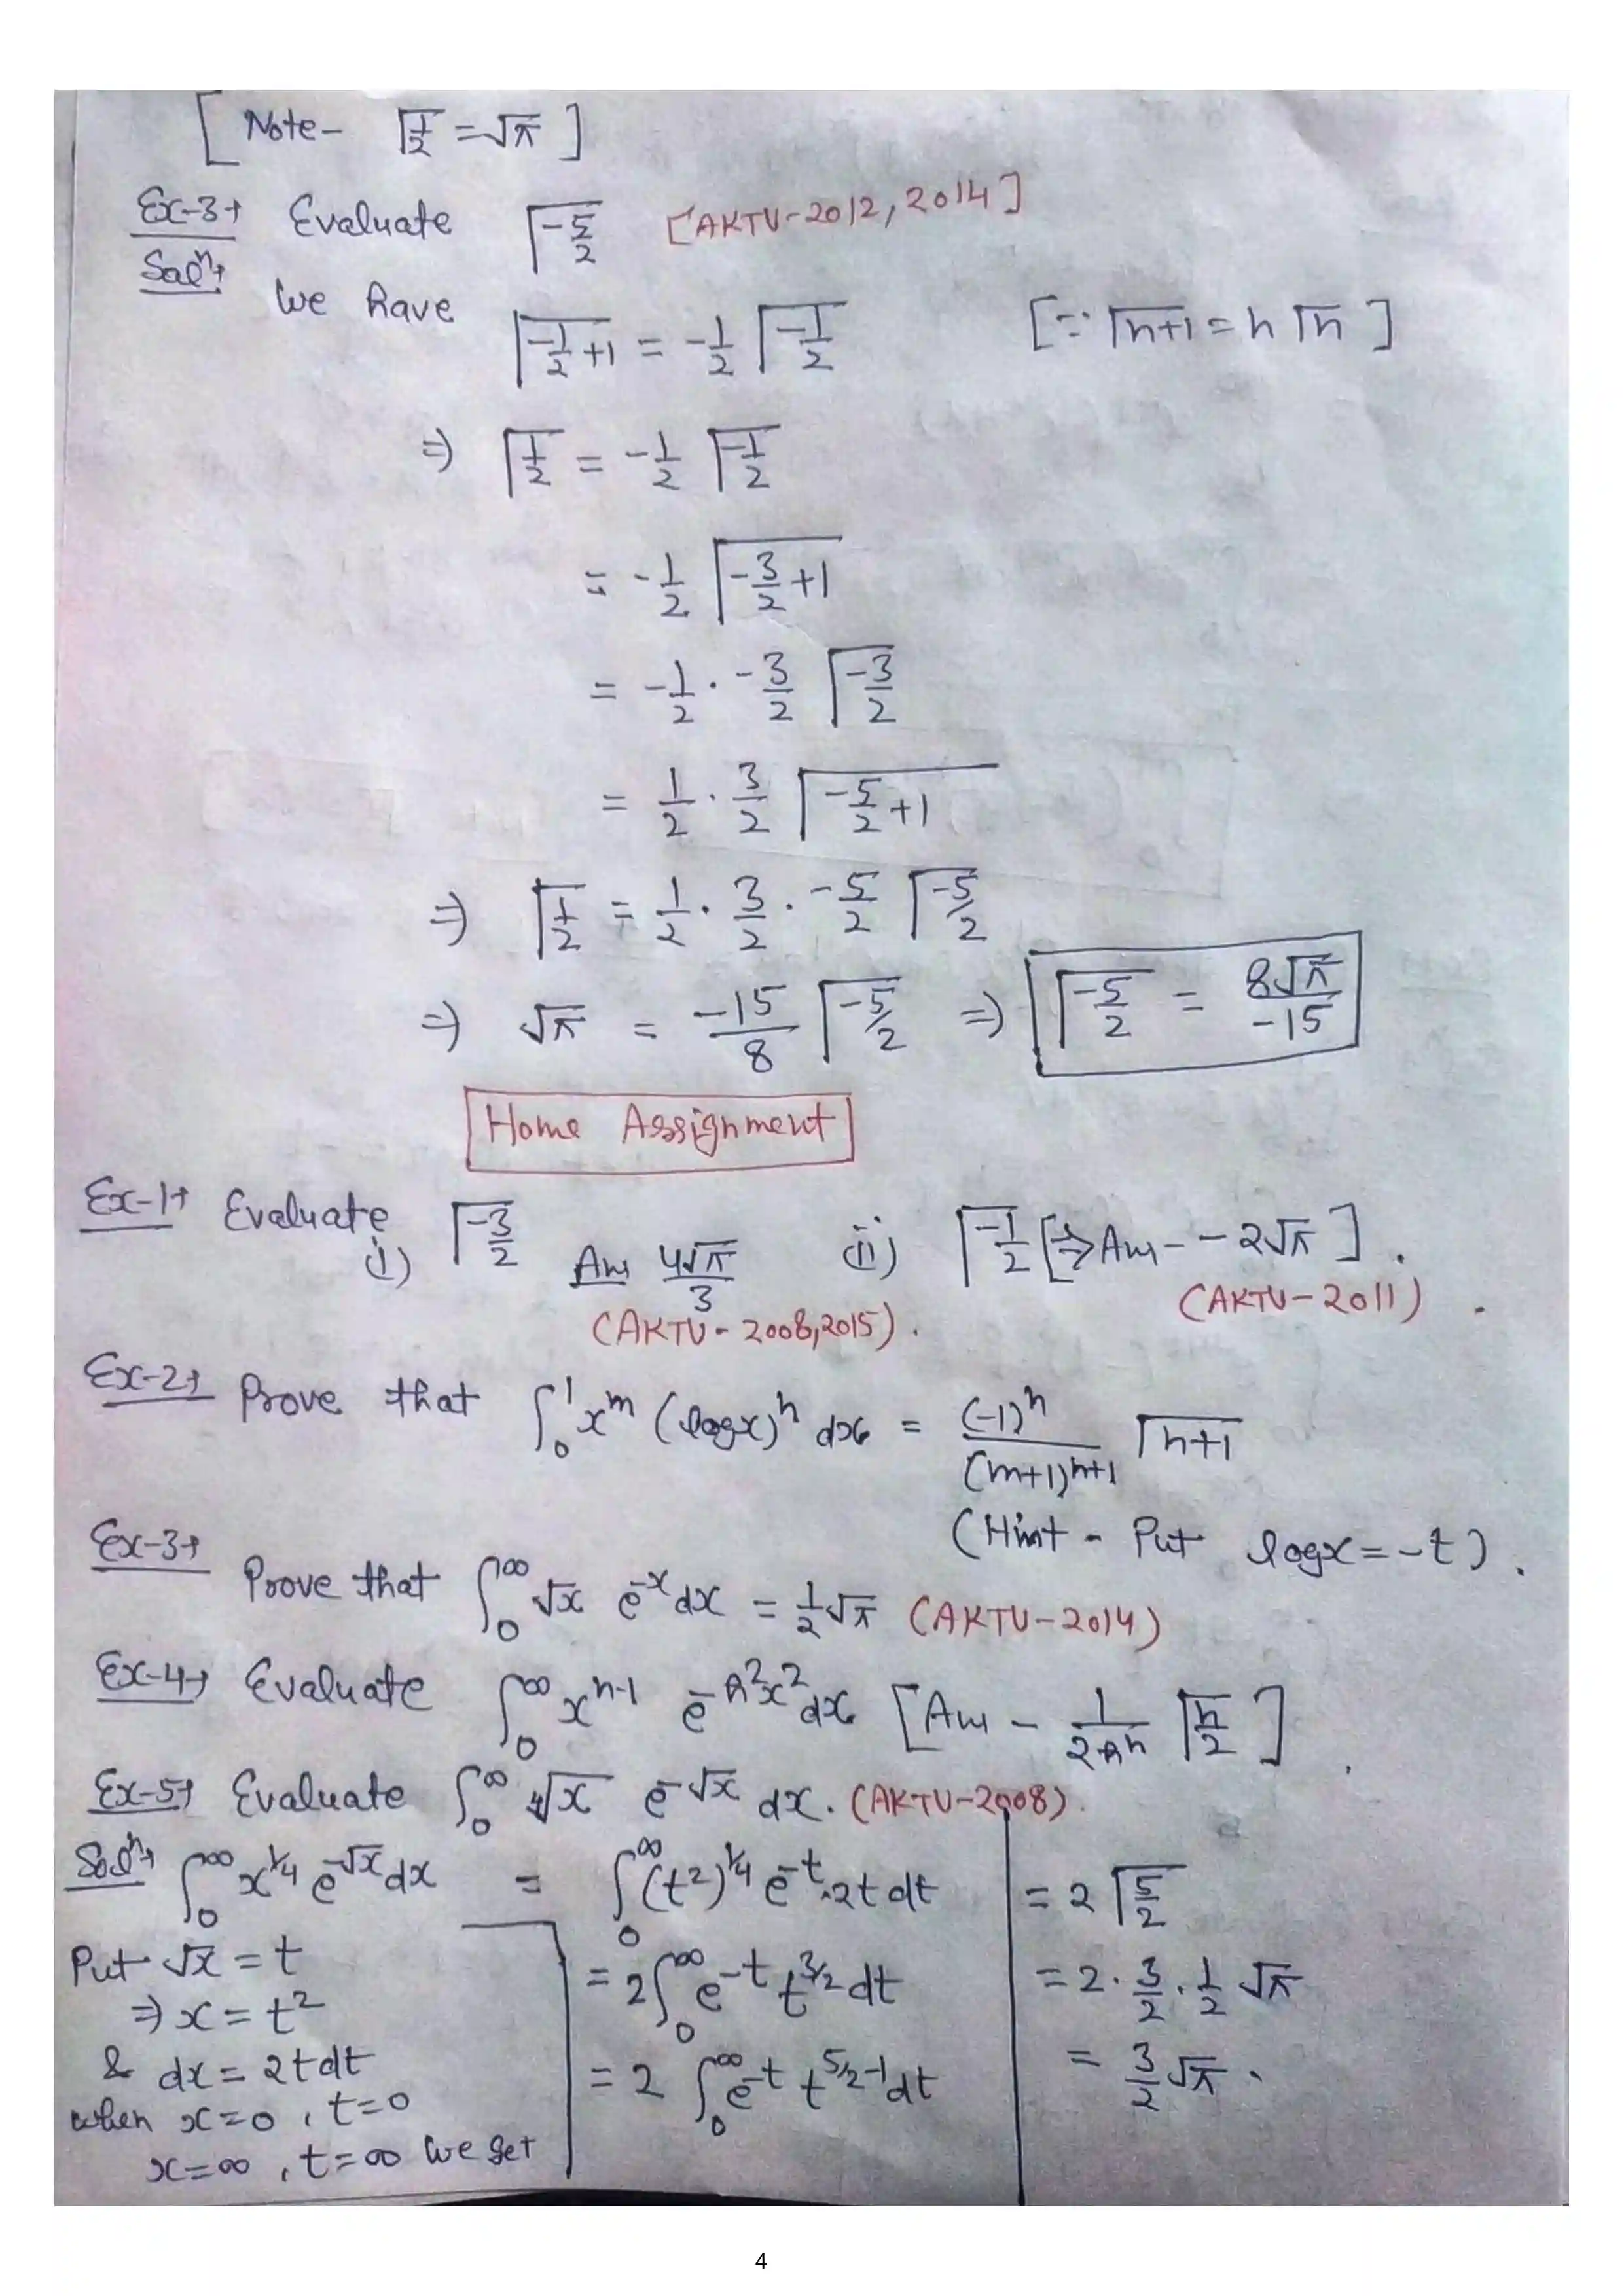 [ Note- Γ1/2 = √π ]
Ex-3→ Evaluate Γ-5/2 [AKTU-2012, 2014]
Solⁿ→ We have
Γ(-1/2 +1) = -1/2 Γ-1/2 [∵ Γn+1 = n Γn ]
⇒ Γ1/2 = -1/2 Γ-1/2
= -1/2 Γ(-3/2 +1)
= -1/2 · -3/2 Γ-3/2
= 1/2 · 3/2 Γ(-5/2 +1)
⇒ Γ1/2 = 1/2 · 3/2 · -5/2 Γ-5/2
⇒ √π = -15/8 Γ-5/2 ⇒ Γ-5/2 = 8√π/-15
Home Assignment
Ex-1→ Evaluate
(i) Γ-3/2 Ans 4√π/3 (ii) Γ-1/2 [⇒ Ans- -2√π ] .
(AKTU- 2008,2015). (AKTU-2011) .
Ex-2→ Prove that ∫₀¹ x^m (logx)^n dx = (-1)^n/(m+1)^(n+1) Γn+1
(Hint - Put logx = -t) .
Ex-3→ Prove that ∫₀^∞ √x e^-x dx = 1/2 √π (AKTU-2014)
Ex-4→ Evaluate ∫₀^∞ x^(n-1) e^(-h²x²) dx [Ans - 1/(2h^n) Γn/2 ] .
Ex-5→ Evaluate ∫₀^∞ ∜x e^-√x dx. (AKTU-2008)
Solⁿ→ ∫₀^∞ x^1/4 e^-√x dx = ∫₀^∞ (t²)^1/4 e^-t .2t dt
Put √x = t
⇒ x = t²
& dx = 2t dt
when x=0 , t=0
x=∞ , t=∞ We get
= 2∫₀^∞ e^-t t^3/2 dt
= 2 ∫₀^∞ e^-t t^(5/2-1) dt
= 2 Γ5/2
= 2 · 3/2 · 1/2 √π
= 3/2 √π .
4